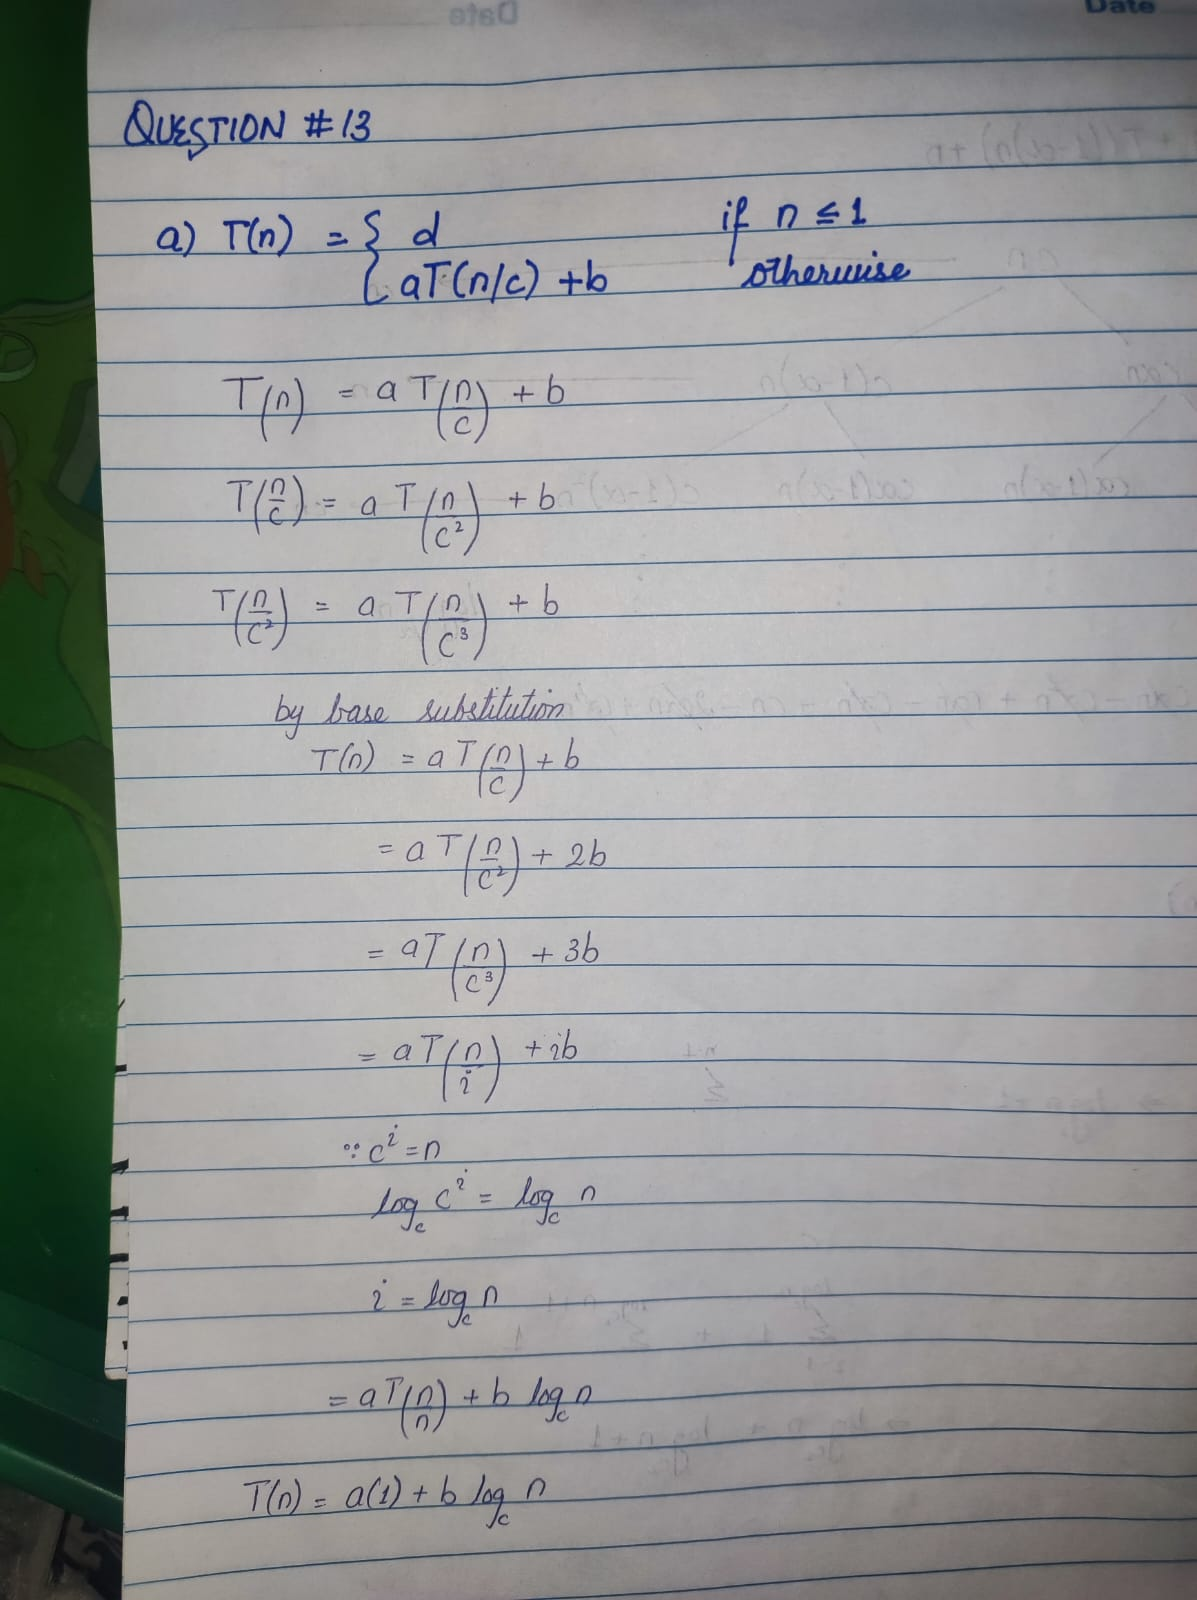 Date
QUESTION #13
a) T(n) = { d if n ≤ 1
aT(n/c) + b otherwise
T(n) = a T(n/c) + b
T(n/c) = a T(n/c²) + b
T(n/c²) = a T(n/c³) + b
by base substitution
T(n) = a T(n/c) + b
= a T(n/c²) + 2b
= aT(n/c³) + 3b
= aT(n/i) + ib
∵ cⁱ = n
log_c cⁱ = log_c n
i = log_c n
= aT(n/n) + b log_c n
T(n) = a(1) + b log_c n